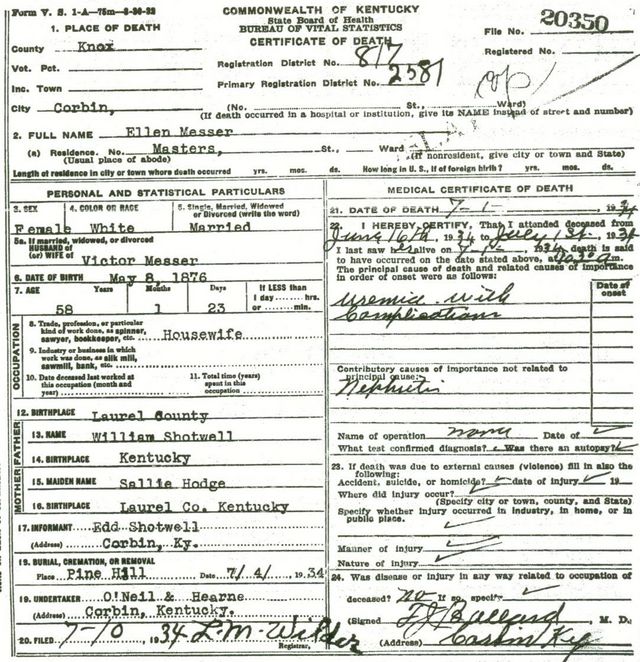 Form V. S. 1-A—75m—8-26-32
COMMONWEALTH OF KENTUCKY
State Board of Health
BUREAU OF VITAL STATISTICS
CERTIFICATE OF DEATH
File No. 20350
Registered No.
1. PLACE OF DEATH
County Knox
Vot. Pct.
Inc. Town
City Corbin,
Registration District No. 817
Primary Registration District No. 2581
(No. St., Ward)
(If death occurred in a hospital or institution, give its NAME instead of street and number)
2. FULL NAME Ellen Messer
(a) Residence. No. Masters, St., Ward
(Usual place of abode) (If nonresident, give city or town and State)
Length of residence in city or town where death occurred yrs. mos. ds. How long in U. S., if of foreign birth? yrs. mos. ds.
PERSONAL AND STATISTICAL PARTICULARS
3. SEX 4. COLOR OR RACE 5. Single, Married, Widowed
or Divorced (write the word)
Female White Married
5a. If married, widowed, or divorced
HUSBAND of
(or) WIFE of Victor Messer
6. DATE OF BIRTH May 8, 1876
7. AGE Years Months Days If LESS than
1 day hrs.
or min.
58 1 23
OCCUPATION
8. Trade, profession, or particular
kind of work done, as spinner,
sawyer, bookkeeper, etc. Housewife
9. Industry or business in which
work was done, as silk mill,
sawmill, bank, etc.
10. Date deceased last worked at
this occupation (month and
year)
11. Total time (years)
spent in this
occupation
12. BIRTHPLACE Laurel County
FATHER
13. NAME William Shotwell
14. BIRTHPLACE Kentucky
MOTHER
15. MAIDEN NAME Sallie Hodge
16. BIRTHPLACE Laurel Co. Kentucky
17. INFORMANT Edd Shotwell
(Address) Corbin, Ky.
18. BURIAL, CREMATION, OR REMOVAL
Place Pine Hill Date 7/4/ 1934
19. UNDERTAKER O'Neil & Hearne
(Address) Corbin, Kentucky.
20. FILED 7-10 1934 L. M. Wilder
Registrar,
MEDICAL CERTIFICATE OF DEATH
21. DATE OF DEATH 7-1- 1934
22. I HEREBY CERTIFY, That I attended deceased from
June 16th, 1934 to July 1st, 1934
I last saw her alive on 7-1- 1934 death is said
to have occurred on the date stated above, at
The principal cause of death and related causes of importance
in order of onset were as follows:
Date of
onset
Uremia with
Complications
Contributory causes of importance not related to
principal cause:
Nephritis
Name of operation none Date of
What test confirmed diagnosis? Was there an autopsy?
23. If death was due to external causes (violence) fill in also the
following:
Accident, suicide, or homicide? date of injury 19
Where did injury occur?
(Specify city or town, county, and State)
Specify whether injury occurred in industry, in home, or in
public place.
Manner of injury
Nature of injury
24. Was disease or injury in any way related to occupation of
deceased? No If so, specify
(Signed) Ballard, M. D.
(Address) Corbin Ky